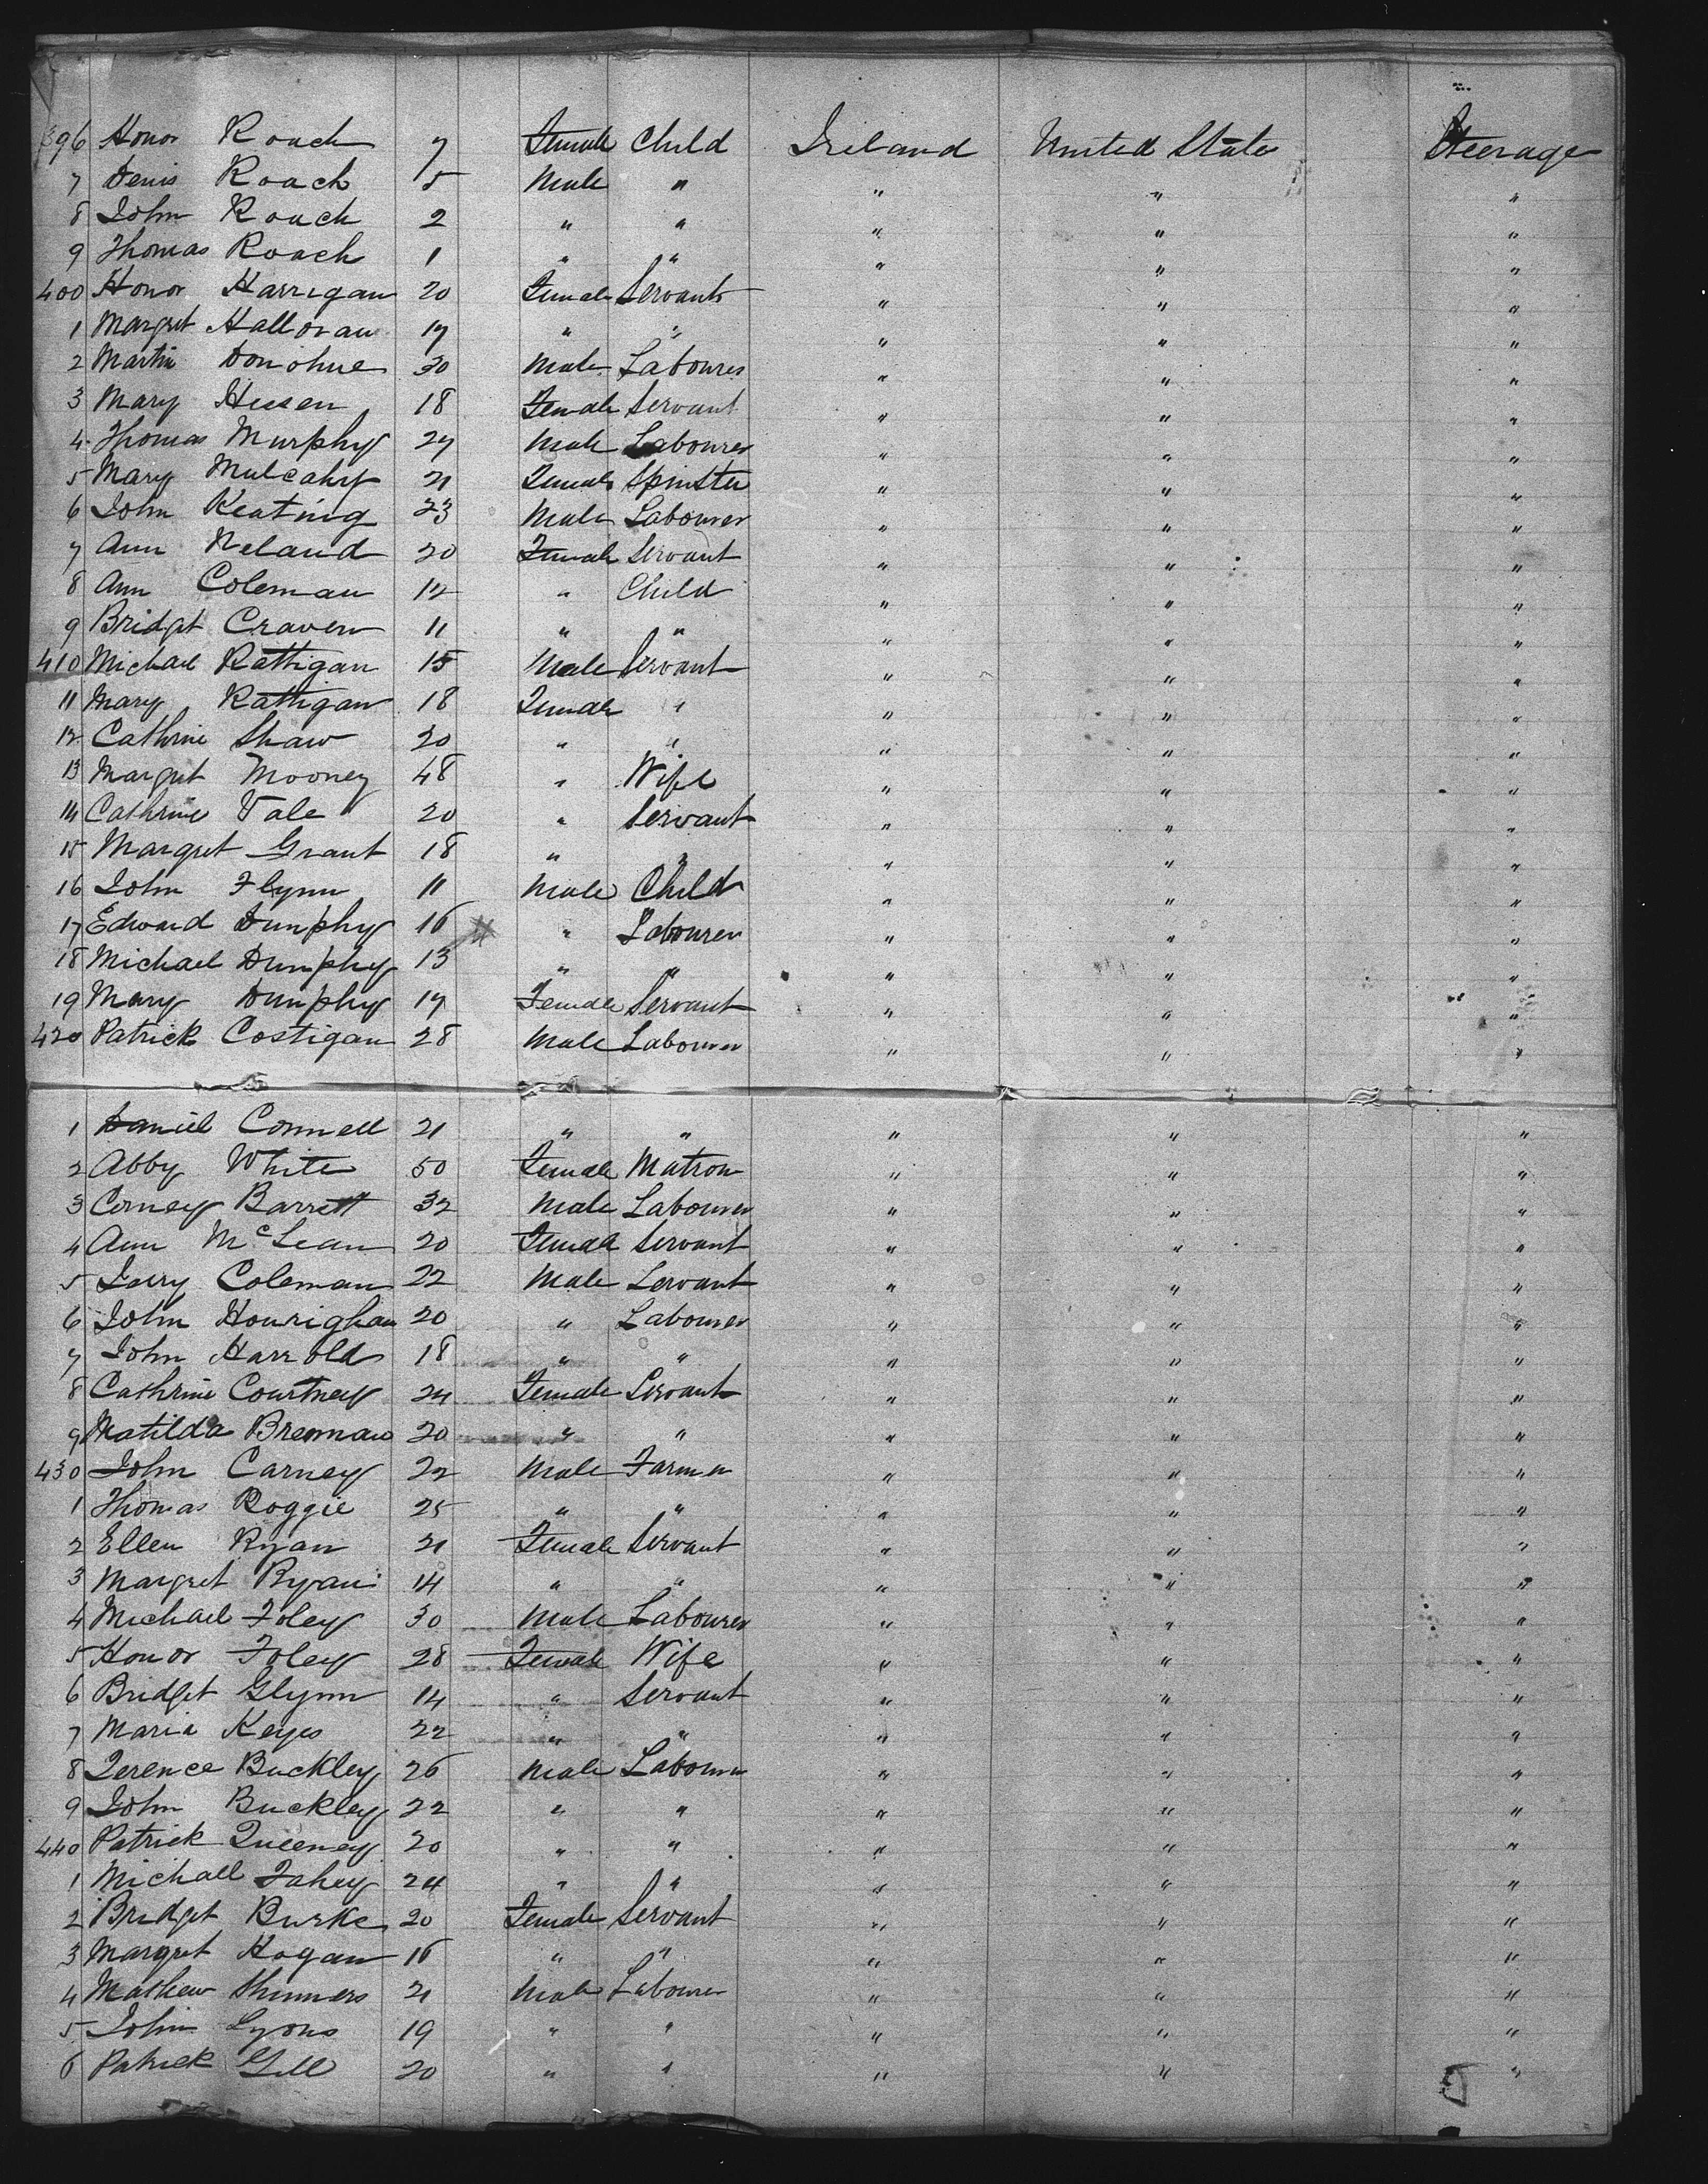 396 Honor Roach 7 Female Child Ireland United States Steerage
7 Denis Roach 5 Male " " " "
8 John Roach 2 " " " " "
9 Thomas Roach 1 " " " " "
400 Honor Harrigan 20 Female Servant " " "
1 Margret Halloran 17 " " " " "
2 Martin Donohue 30 Male Labourer " " "
3 Mary 18 Female Servant " " "
4 Thomas Murphy 27 Male Labourer " " "
5 Mary Mulcahy 21 Female Spinster " " "
6 John Keating 23 Male Labourer " " "
7 Ann Neland 20 Female Servant " " "
8 Ann Coleman 12 " Child " " "
9 Bridget Craven 11 " " " " "
410 Michael Rattigan 15 Male Servant " " "
11 Mary Rattigan 18 Female " " " "
12 Cathrine Shaw 20 " " " " "
13 Margret Mooney 48 " Wife " " "
14 Cathrine Vale 20 " Servant " " "
15 Margret Grant 18 " " " " "
16 John Flynn 11 Male Child " " "
17 Edward Dunphy 16 " Labourer " " "
18 Michael Dunphy 13 " " " " "
19 Mary Dunphy 17 Female Servant " " "
420 Patrick Costigan 28 Male Labourer " " "
1 Daniel Connell 21 " " " " "
2 Abby White 50 Female Matron " " "
3 Corney Barrett 32 Male Labourer " " "
4 Ann McLean 20 Female Servant " " "
5 Coleman 22 Male Servant " " "
6 John Hourighan 20 " Labourer " " "
7 John Harrold 18 " " " " "
8 Cathrine Courtney 24 Female Servant " " "
9 Matilda Brennan 20 " " " " "
430 John Carney 22 Male Farmer " " "
1 Thomas Roggie 25 " " " " "
2 Ellen Ryan 21 Female Servant " " "
3 Margret Ryan 14 " " " " "
4 Michael Foley 30 Male Labourer " " "
5 Honor Foley 28 Female Wife " " "
6 Bridget Glynn 14 " Servant " " "
7 Maria Keyes 22 " " " " "
8 Terence Buckley 26 Male Labourer " " "
9 John Buckley 22 " " " " "
440 Patrick Queeney 20 " " " " "
1 Michall Fahey 24 " " " " "
2 Bridget Burke 20 Female Servant " " "
3 Margret Hogan 16 " " " " "
4 Mathew Shinners 21 Male Labourer " " "
5 John Lyons 19 " " " " "
6 Patrick Gill 20 " " " " "